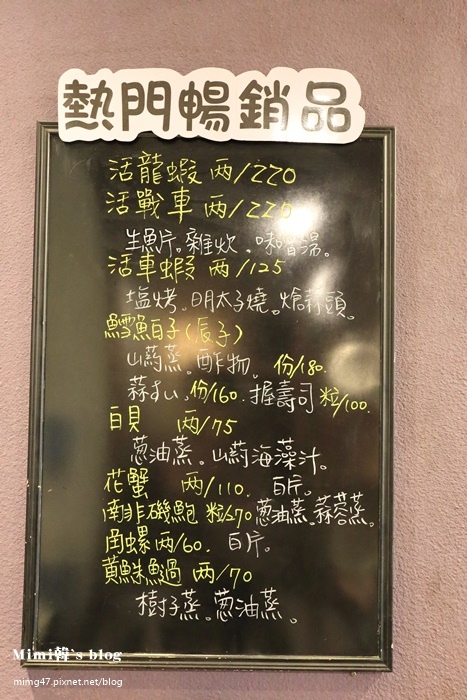 熱門暢銷品
活龍蝦 兩/220
活戰車 兩/220
生魚片。雜炊。味噌湯。
活車蝦 兩/125
塩烤。明太子燒。燴蒜頭。
鱈魚白子(辰子)
山葯蒸。酢物。份/180.
蒜すい。份/160. 握壽司 粒/100.
白貝 兩/75
葱油蒸。山葯海藻汁。
花蟹 兩/110. 白片。
南非磯鮑 粒/670 葱油蒸。蒜蓉蒸。
角螺 兩/60. 白片。
樹子蒸。葱油蒸。
Mimi韓's blog
mimg47.pixnet.net/blog